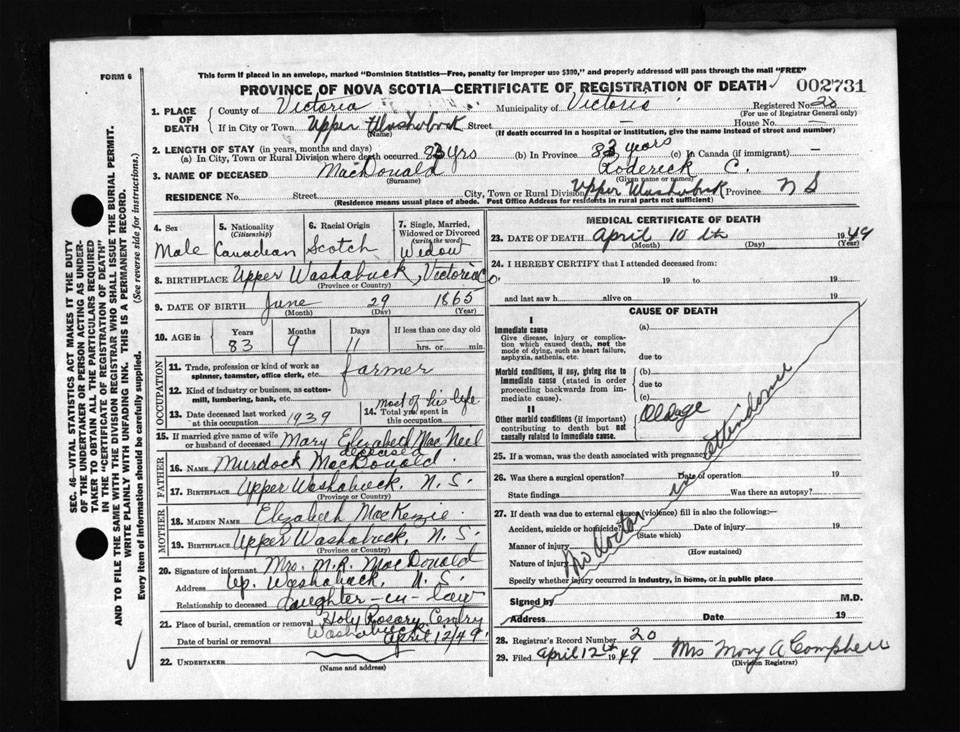 FORM 6
This form if placed in an envelope, marked "Dominion Statistics—Free, penalty for improper use $300," and properly addressed will pass through the mail "FREE"
PROVINCE OF NOVA SCOTIA—CERTIFICATE OF REGISTRATION OF DEATH 002731
1. PLACE OF DEATH
County of Victoria Municipality of Victoria Registered No. 20
(For use of Registrar General only)
If in City or Town Upper Washabuck Street — House No. —
(Name) (If death occurred in a hospital or institution, give the name instead of street and number)
2. LENGTH OF STAY (in years, months and days)
(a) In City, Town or Rural Division where death occurred 83 yrs (b) In Province 83 years (c) In Canada (if immigrant) —
3. NAME OF DECEASED MacDonald Roderick C.
(Surname) (Given name or names)
RESIDENCE No. Street City, Town or Rural Division Upper Washabuck Province N S
(Residence means usual place of abode. Post Office Address for residents in rural parts not sufficient)
4. Sex
Male
5. Nationality
(Citizenship)
Canadian
6. Racial Origin
Scotch
7. Single, Married, Widowed or Divorced
(write the word)
Widow
8. BIRTHPLACE Upper Washabuck, Victoria Co.
(Province or Country)
9. DATE OF BIRTH June 29 1865
(Month) (Day) (Year)
10. AGE in
Years Months Days If less than one day old
83 9 11 hrs. or min.
OCCUPATION
11. Trade, profession or kind of work as spinner, teamster, office clerk, etc. farmer
12. Kind of industry or business, as cotton-mill, lumbering, bank, etc.
13. Date deceased last worked at this occupation 1939
14. Total yrs. spent in this occupation most of his life
15. If married give name of wife or husband of deceased Mary Elizabeth MacNeel
deceased
FATHER
16. NAME Murdock MacDonald
17. BIRTHPLACE Upper Washabuck, N. S.
(Province or Country)
MOTHER
18. MAIDEN NAME Elizabeth MacKezie
19. BIRTHPLACE Upper Washabuck, N. S.
(Province or Country)
20. Signature of informant Mrs. M. R. MacDonald
Address Up. Washabuck, N. S.
Relationship to deceased daughter-in-law
21. Place of burial, cremation or removal Holy Rosary Cemtry
Washabuck
Date of burial or removal April 12/49
22. UNDERTAKER
(Name and address)
MEDICAL CERTIFICATE OF DEATH
23. DATE OF DEATH April 10th 1949
(Month) (Day) (Year)
24. I HEREBY CERTIFY that I attended deceased from:
19 to 19
and last saw h alive on 19
CAUSE OF DEATH
I
Immediate cause
Give disease, injury or complication which caused death, not the mode of dying, such as heart failure, asphyxia, asthenia, etc.
(a)
due to
Morbid conditions, if any, giving rise to immediate cause (stated in order proceeding backwards from immediate cause).
(b)
due to
(c)
II
Other morbid conditions (if important) contributing to death but not causally related to immediate cause.
Old age
25. If a woman, was the death associated with pregnancy
26. Was there a surgical operation? Date of operation 19
State findings Was there an autopsy?
27. If death was due to external causes (violence) fill in also the following:—
Accident, suicide or homicide? Date of injury 19
(State which)
Manner of injury
(How sustained)
Nature of injury
Specify whether injury occurred in industry, in home, or in public place
No doctor in attendance
Signed by M.D.
Address Date 19
28. Registrar's Record Number 20
29. Filed April 12th 1949 Mrs Mary A Campbell
(Division Registrar)
SEC. 46—VITAL STATISTICS ACT MAKES IT THE DUTY
OF THE UNDERTAKER OR PERSON ACTING AS UNDER-
TAKER TO OBTAIN ALL THE PARTICULARS REQUIRED
IN THE "CERTIFICATE OF REGISTRATION OF DEATH"
AND TO FILE THE SAME WITH THE DIVISION REGISTRAR WHO SHALL ISSUE THE BURIAL PERMIT.
WRITE PLAINLY WITH UNFADING INK. THIS IS A PERMANENT RECORD.
Every item of information should be carefully supplied. (See reverse side for instructions.)